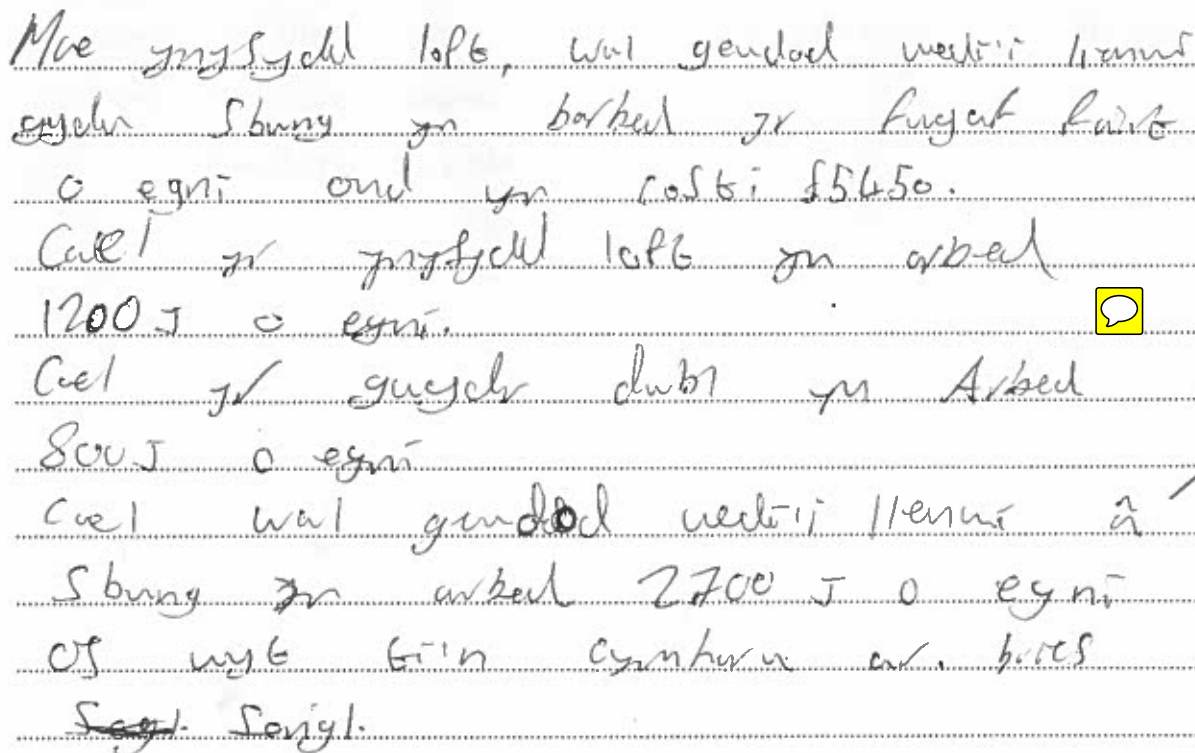 Mae ynysydd loft, wal gendod wedi'i llenwi
gyda Sbwng yn barbed yr fwyaf faint
o egni ond yn costi £5450.
Cael yr ynysydd loft yn arbed
1200 J o egni.
Cael yr gwydr dwbl yn Arbed
800 J o egni
Cael wal gendod wedi'i llenwi â
Sbwng yn arbed 2700 J o egni
os wyt ti'n cymharu ar. bris